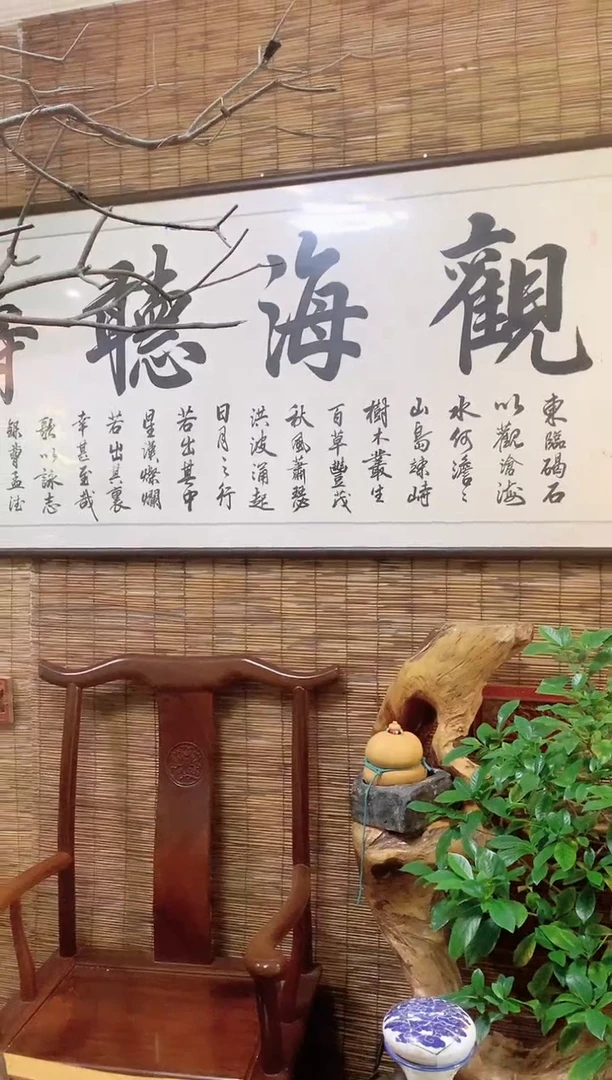 觀海聽
東臨碣石
以觀滄海
水何澹〻
山島竦峙
樹木叢生
百草豐茂
秋風蕭瑟
洪波涌起
日月之行
若出其中
星漢燦爛
若出其裏
幸甚至哉
歌以詠志
錄曹孟德